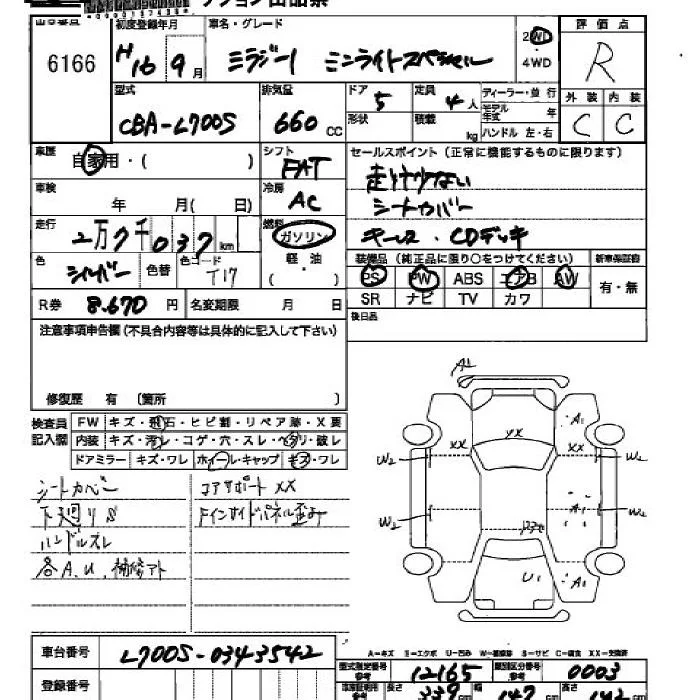 クション出品票
出品番号 初度登録年月 車名・グレード 評価点
6166 H16 9月 ミラジーノ ミニライトスペシャル 2WD・4WD R
型式 排気量 ドア 定員 ディーラー・並行 外装 内装
CBA-L700S 660 CC 5 4人 モデル年式 年 C C
形状 積載 kg ハンドル 左・右
車歴 自家用・( ) シフト FAT セールスポイント(正常に機能するものに限ります)
車検 年 月( 日) 冷房 AC 走行少ない
シートカバー
走行 2万7千037km 燃料 ガソリン キーレス・CDデッキ
色 シルバー 色替 色コード T17 軽油 ( )
装備品(純正品に限り○をつけてください) 新車保証書
PS PW ABS エアB AW 有・無
SR ナビ TV カワ
R券 8.670円 名変期限 月 日 後日品
注意事項申告欄(不具合内容等は具体的に記入して下さい)
修復歴 有 〔箇所 〕
検査員記入欄 FW キズ・飛石・ヒビ割・リペア跡・X要
内装 キズ・汚レ・コゲ・穴・スレ・ヘタリ・破レ
ドアミラー キズ・ワレ ホイール・キャップ キズ・ワレ
シートカバー コアサポート XX
下廻りS Fインサイドパネル歪み
ハンドルスレ
各A.U.補修アト
A1
A1
XX XX XX
W2 W2
A1
W2 W2
U1 A1
A-キズ E-エクボ U-凹み W-補修跡 S-サビ C-腐食 XX-交換済
車台番号 L700S-0343542
型式指定番号 参考 12165 類別区分番号 参考 0003
登録番号
長さ 339 cm 幅 147 cm 高さ 142 cm